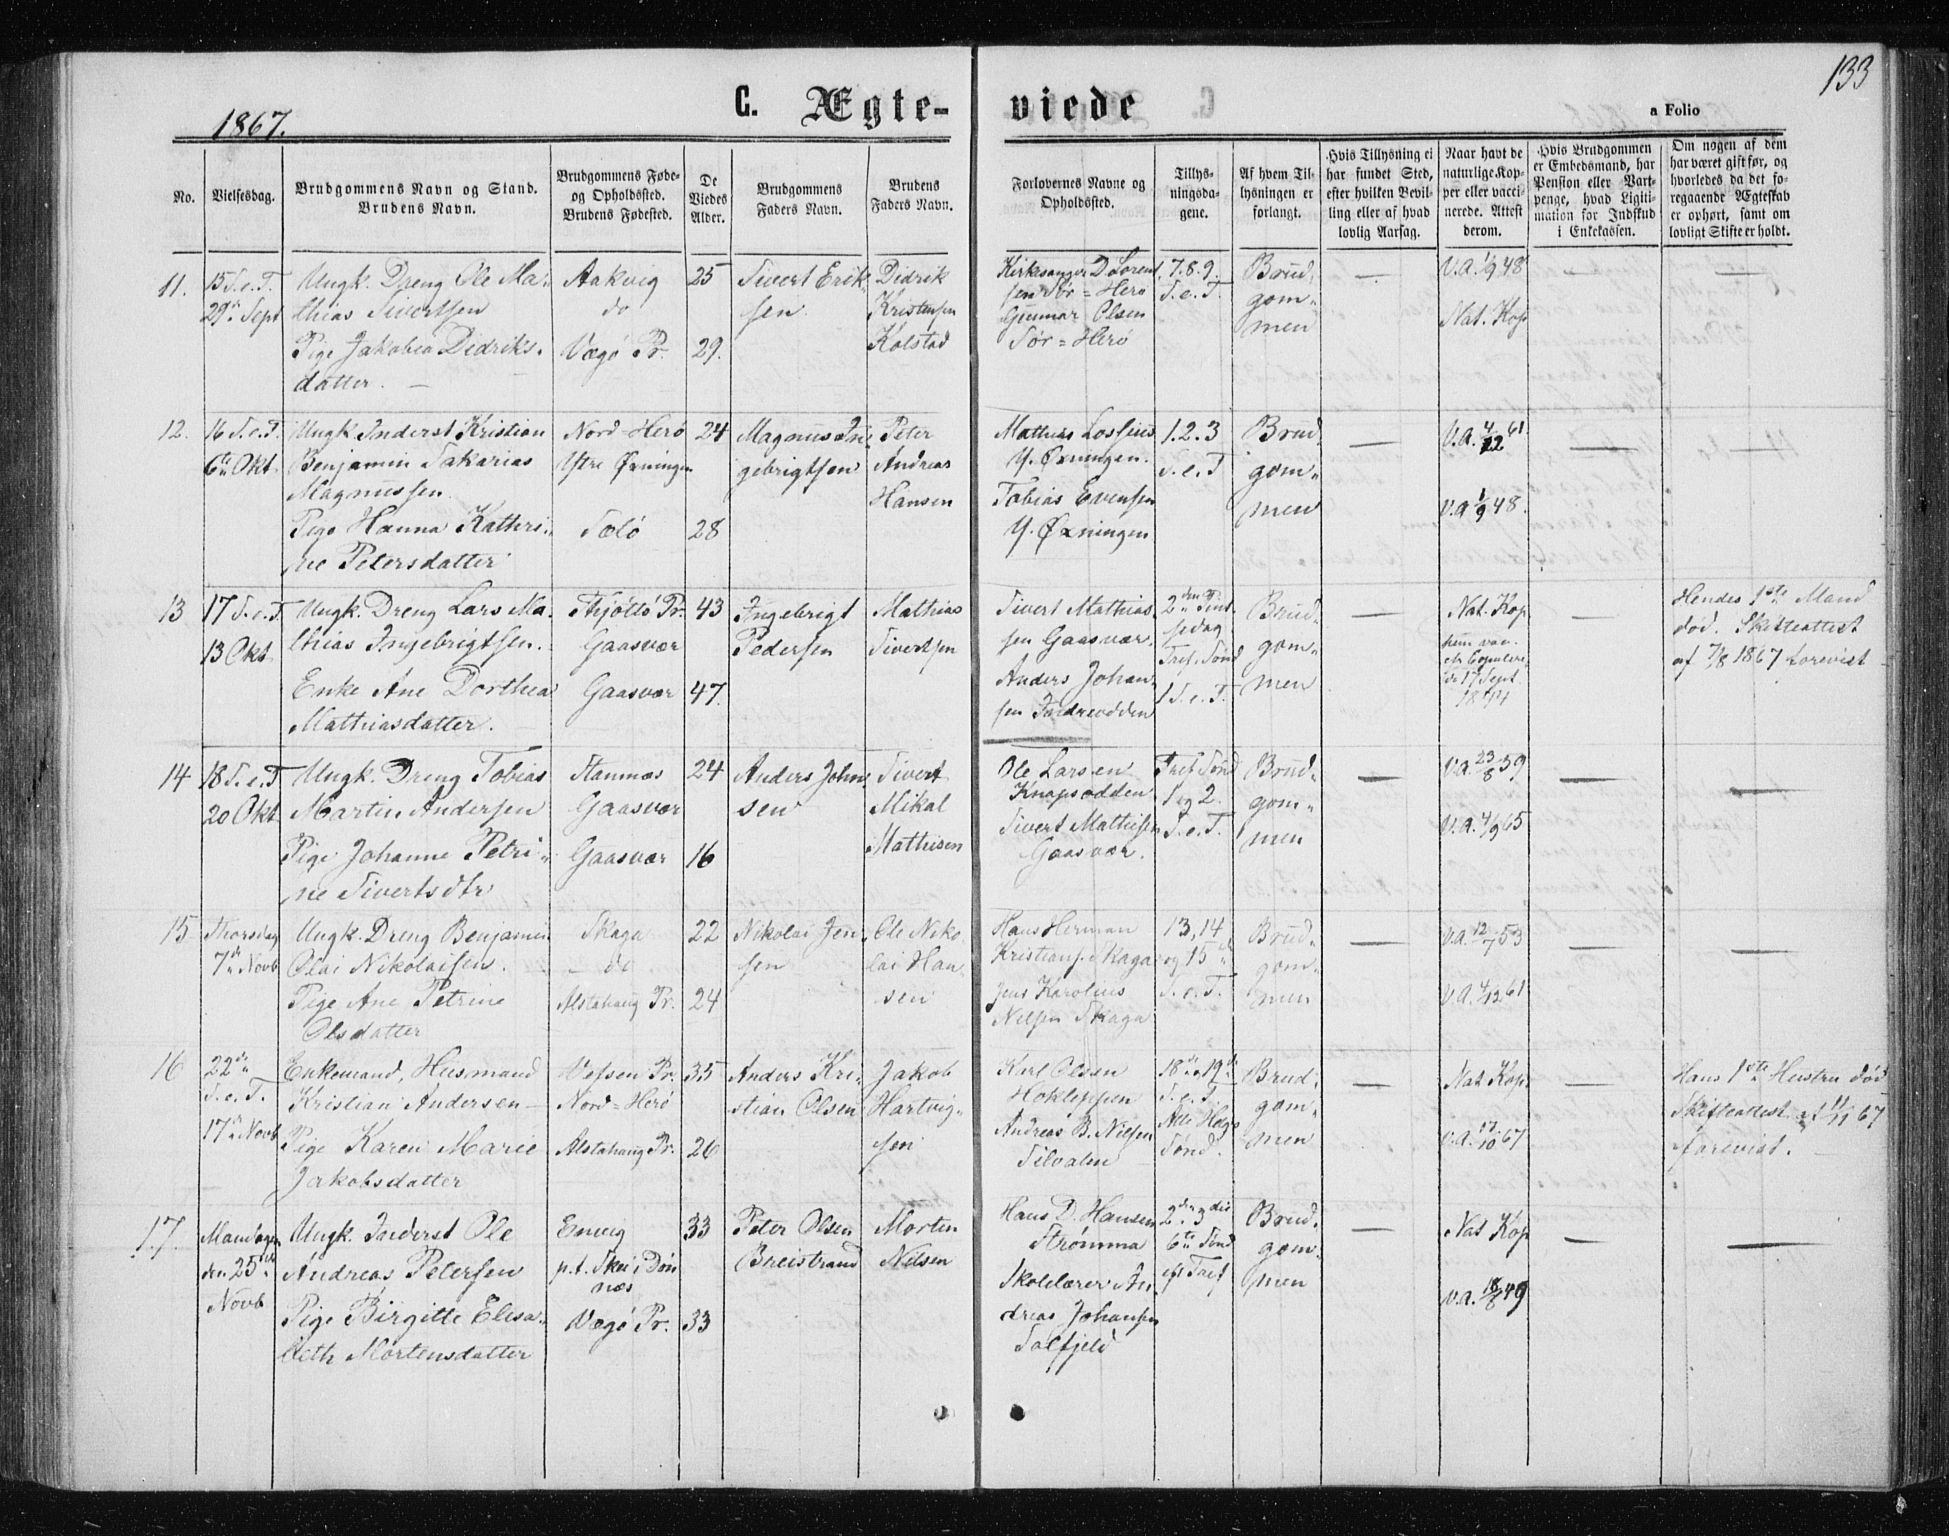 133
1867.
C. Ægte-
viede
a Folio
No.
Vielsesdag.
Brudgommens Navn og Stand.
Brudens Navn.
Brudgommens Føde-
og Opholdssted.
Brudens Fødested.
De
Viedes
Alder.
Brudgommens
Faders Navn.
Brudens
Faders Navn.
Forlovernes Navne og
Opholdssted.
Tillys-
ningsda-
gene.
Af hvem Til-
lysningen er
forlangt.
Hvis Tillysning ei
har fundet Sted,
efter hvilken Bevil-
ling eller af hvad
lovlig Aarsag.
Naar havt de
naturlige Kop-
per eller vacci-
nerede. Attest
derom.
Hvis Brudgommen
er Embedsmand, har
Pension eller Vart-
penge, hvad Ligiti-
mation for Indskud
i Enkekassen.
Om nogen af dem
har været gift før, og
hvorledes da det fo-
regaaende Ægteskab
er ophørt, samt om
lovligt Skifte er holdt.
11.
15 S. e. T.
29de Sept
Ungk. Dreng Ole Ma-
thias Sivertsen
Pige Jakobea Didriks-
datter.
Aakvig
do
Vegø Pr.
25
29.
Sivert Erik-
sen
Didrik
Kristensen
Kolstad
Kirksanger D Lorent
sen Sør=Herø
Gunnar Olsen
Sør=Herø
7.8.9.
S. e. T.
Brud-
gom-
men
V.A. 1/9 48
Nat. Kop
12.
16 S. e. T.
6te Okt.
Ungk. Inderst Kristian
Benjamin Sakarias
Magnussen
Pige Hanna Kathri-
ne Petersdatter
Nord-Herø
Ytre Øxningen
Sælø
24
28
Magnus In-
gebrigtsen
Peter
Andreas
Hansen
Mathias Lossius
Y. Øxningen.
Tobias Evensen
Y. Øxningen
1.2.3
S. e. T
Brud-
gom-
men
V.A. 4/12 61
V.A 1/9 48.
13
17 S. e. T.
13 Okt
Ungk. Dreng Lars Ma-
thias Ingebrigtsen.
Enke Ane Dorthea
Mathiasdatter.
Thjøttø Pr.
Gaasvær
Gaasvær
43
47.
Ingebrigt
Pedersen
Mathias
Sivertsen
Sivert Mathias-
sen Gaasvær.
Anders Johan-
sen Indreodden
2den Pint-
sedag
Tref. Sønd
1 S. e. T.
Brud-
gom-
men
Nat. Kop
17 Sept
Hendes 1ste Mand
død. Skifteattest
af 7/8 1867 forevist
14
18 S. e. T
20 Okt
Ungk. Dreng Tobias
Martin Andersen
Pige Johanne Petri-
ne Sivertsdtr
Stamnæs
Gaasvær
Gaasvær
24
16
Anders John-
sen
Sivert
Mikal
Mathisen
Ole Larsen
Knapsodden
Sivert Mathisen
Gaasvær.
Tref. Sønd
1 og 2.
S. e. T.
Brud-
gom-
men
V.A. 23/8 59
V.A. 4/9 65
15
Thorsdag
7de Novb
Ungk. Dreng Benjamin
Olai Nikolaisen.
Pige Ane Petrine
Olsdatter
Skaga
do
Alstahaug Pr.
22
24
Nikolai Jen-
sen
Ole Niko-
lai Han
sen
Hans Herman
Kristians. Skaga
Jens Karolius
Nilsen Skaga
13, 14
og 15de
S. e. T.
Brud-
gom-
men
V.A. 12/7 53
V.A. 4/12 61
16
22de
S. e. T.
17de Novb
Enkemand, Husmand
Kristian Andersen
Pige Karen Marie
Jakobsdatter
Vefsen Pr.
Nord=Herø
Alstahaug Pr.
35
26
Anders Kri-
stian Olsen
Jakob
Hartvig-
sen
Karl Olsen
Hokleppen
Andreas B. Nilsen
Silvalen
18de 19de
S. e. T.
Alle Helg.
Sønd.
Brud-
gom-
men
Nat. Kop.
V.A. 17/10 67
Hans 1ste Hustru død
Skifteattest af 11/11 67
forevist.
17.
Mandagen
den 25de
Novb
Ungk. Inderst Ole
Andreas Petersen
Pige Birgitte Elisa-
beth Mortensdatter
Envig
p.t. Skei i Døn
næs
Vegø Pr.
33
33
Peter Olsen
Breistrand
Morten
Nilsen
Hans D. Hansen
Strømma
Skolelærer An-
dreas Johansen
Salfjeld
2den 3die
6te Sønd
ef. Tref
Brud-
gom-
men
Nat. Kop
V.A. 18/8 49